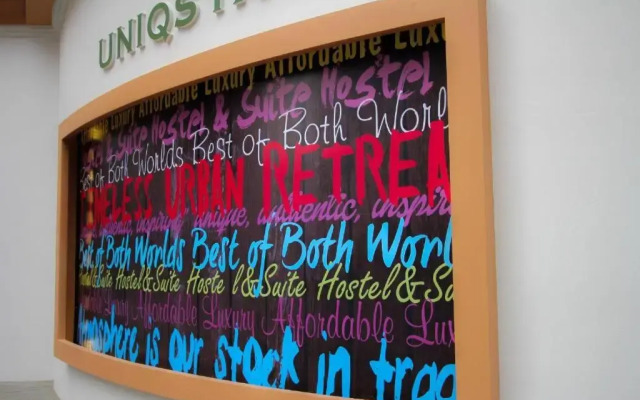 UNIQ
Luxury Affordable Luxury Affordable Luxu
& Suite Hostel & Suite Hostel
Best of Both Worlds Best of Both Worl
TIMELESS URBAN RETREA
authentic, inspiring unique, authentic, inspiri
Best of Both Worlds Best of Both Worl
Hostel & Suite Hostel & Suite Hostel & Su
Luxury Affordable Luxury Affordable Lux
Atmosphere is our stock in trad